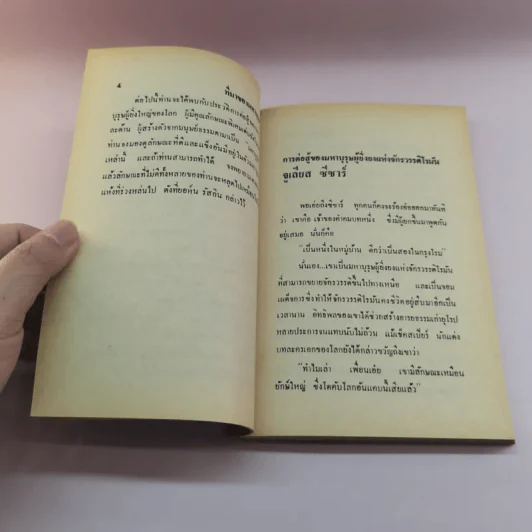 4
ที่มาของ
ต่อไปนี้ท่านจะได้พบกับประวัติการต่อสู้
บุรุษผู้ยิ่งใหญ่ของโลก ผู้มีคุณลักษณะพิเศษ
ละด้าน ผู้สร้างตัวจากมนุษย์ธรรมดามาเป็น
ท่านจงมองดูลักษณะที่ดีและแข็งอันมีอยู่ใน
เหล่านี้ และถ้าท่านสามารถทำได้
แล้วลักษณะที่ไม่ดีทั้งหลายของท่านจะหลุดไป
แห้งที่ร่วงหล่นไป ดังที่ยอห์น รัสกิน กล่าวไว้
การต่อสู้ของมหาบุรุษผู้ยิ่งยงแห่งจักรวรรดิโรมัน
จูเลียส ซีซาร์
พอเอ่ยถึงซีซาร์ ทุกคนก็คงจะร้องอ๋อออกมาทันที
ว่า เขาคือ เจ้าของคำคมบทหนึ่ง ซึ่งมีผู้ยกขึ้นมาพูดกัน
อยู่เสมอ นั่นก็คือ
"เป็นหนึ่งในหมู่บ้าน ดีกว่าเป็นสองในกรุงโรม"
นั่นเอง...เขาเป็นมหาบุรุษผู้ยิ่งยงแห่งจักรวรรดิโรมัน
ที่สามารถขยายจักรวรรดิขึ้นไปทางเหนือ และเป็นจอม
เผด็จการซึ่งทำให้จักรวรรดิโรมันคงชีวิตอยู่สืบมาอีกเป็น
เวลานาน อิทธิพลของเขาได้ช่วยสร้างอารยธรรมเก่ายุโรป
หลายประการจนแทบนับไม่ถ้วน แม้เช็คสเปียร์ นักแต่ง
บทละครเอกของโลกยังได้กล่าวขวัญถึงเขาว่า
"ทำไมเล่า เพื่อนเอ๋ย เขามีลักษณะเหมือน
ยักษ์ใหญ่ ซึ่งโตคับโลกอันแคบนี้เสียแล้ว"